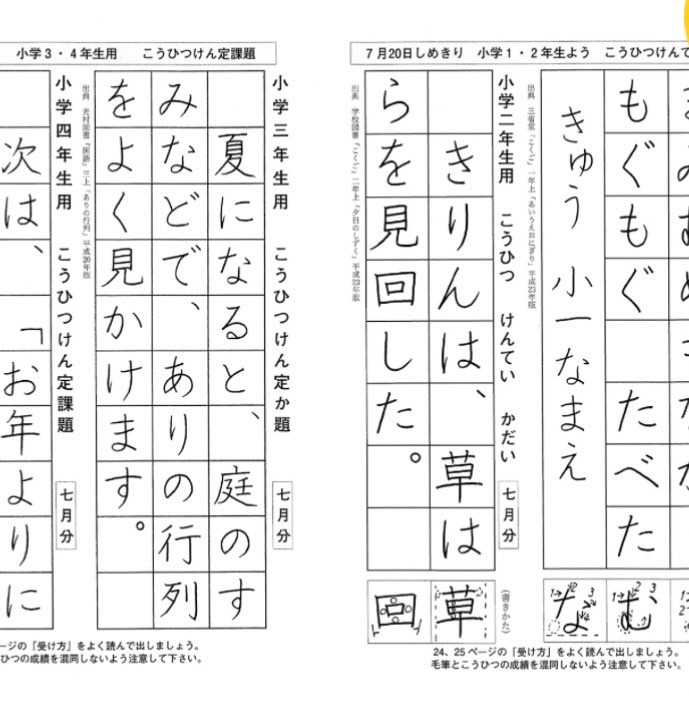 7月20日しめきり　小学1・2年生よう　こうひつけんて
もぐもぐ　たべた
きゅう　小一なまえ
出典　三省堂「こくご」一年上「あいうえおにぎり」平成23年版
小学二年生用　こうひつ　けんてい　かだい　七月分
きりんは、草は
らを見回した。
出典　学校図書「こくご」二年上「夕日のしずく」平成23年版
む
な
(書きかた)
草
回
24、25ページの「受け方」をよく読んで出しましょう。
毛筆とこうひつの成績を混同しないよう注意して下さい。
小学3・4年生用　こうひつけん定課題
小学三年生用　こうひつけん定か題　七月分
夏になると、庭のす
みなどで、ありの行列
をよく見かけます。
出典　光村図書「国語」三上「ありの行列」平成20年版
小学四年生用　こうひつけん定課題　七月分
次は、「お年よりに
ージの「受け方」をよく読んで出しましょう。
ひつの成績を混同しないよう注意して下さい。